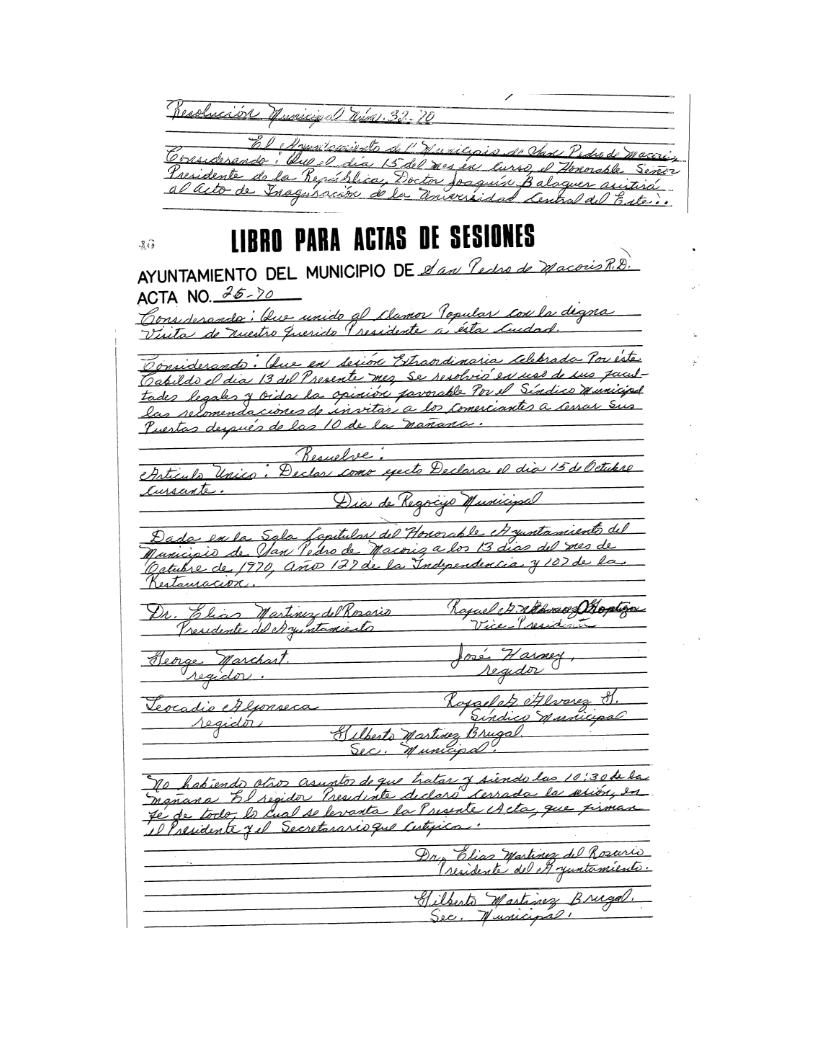 Resolución Municipal Núm. 32-70
El Ayuntamiento del Municipio de San Pedro de Macoris
Considerando: Que el dia 15 del mes en curso, el Honorable Señor
Presidente de la República, Doctor Joaquín Balaguer asistirá
al Acto de Inaguración de la Universidad Central del Este..
LIBRO PARA ACTAS DE SESIONES
AYUNTAMIENTO DEL MUNICIPIO DE San Pedro de Macoris R.D.
ACTA NO. 25-70
Considerando: Que unido al Clamor Popular con la digna
Visita de nuestro querido Presidente a ésta Ciudad.
Considerando: Que en sesión Extraordinaria Celebrada Por éste
Cabildo el dia 13 del Presente mez, se resolvió en uso de sus facul-
tades legales y oida la opinión favorable Por el Síndico Municipal
las recomendaciones de invitar a los comerciantes a cerrar sus
Puertas después de las 10 de la mañana.
Resuelve:
Artículo Unico: Declar como efecto Declara el dia 15 de Octubre
Cursante.
Dia de Regocijo Municipal
Dada en la Sala Capitular del Honorable Ayuntamiento del
Municipio de San Pedro de Macoriz a los 13 dias del mes de
Octubre de 1970, Año 127 de la Independencia y 107 de la
Restauración.
Dr. Elias Martinez del Rosario Rafael A.
Presidente del Ayuntamiento Vice-Presidente
George Marchart. José Harney,
regidor. regidor
Leocadio Alfonseca Rafael A. Alvarez H.
regidor Síndico Municipal
Gilberto Martinez Brugal.
Sec. Municipal.
No habiendo otros asuntos de que tratar y siendo las 10:30 de la
mañana El regidor Presidente declaró cerrada la sesión, en
fe de todo, lo cual se levanta la Presente Acta, que firman
el Presidente y el Secretarario que Certifica.
Dr. Elias Martinez del Rosario
Presidente del Ayuntamiento.
Gilberto Martinez Brugal.
Sec. Municipal.